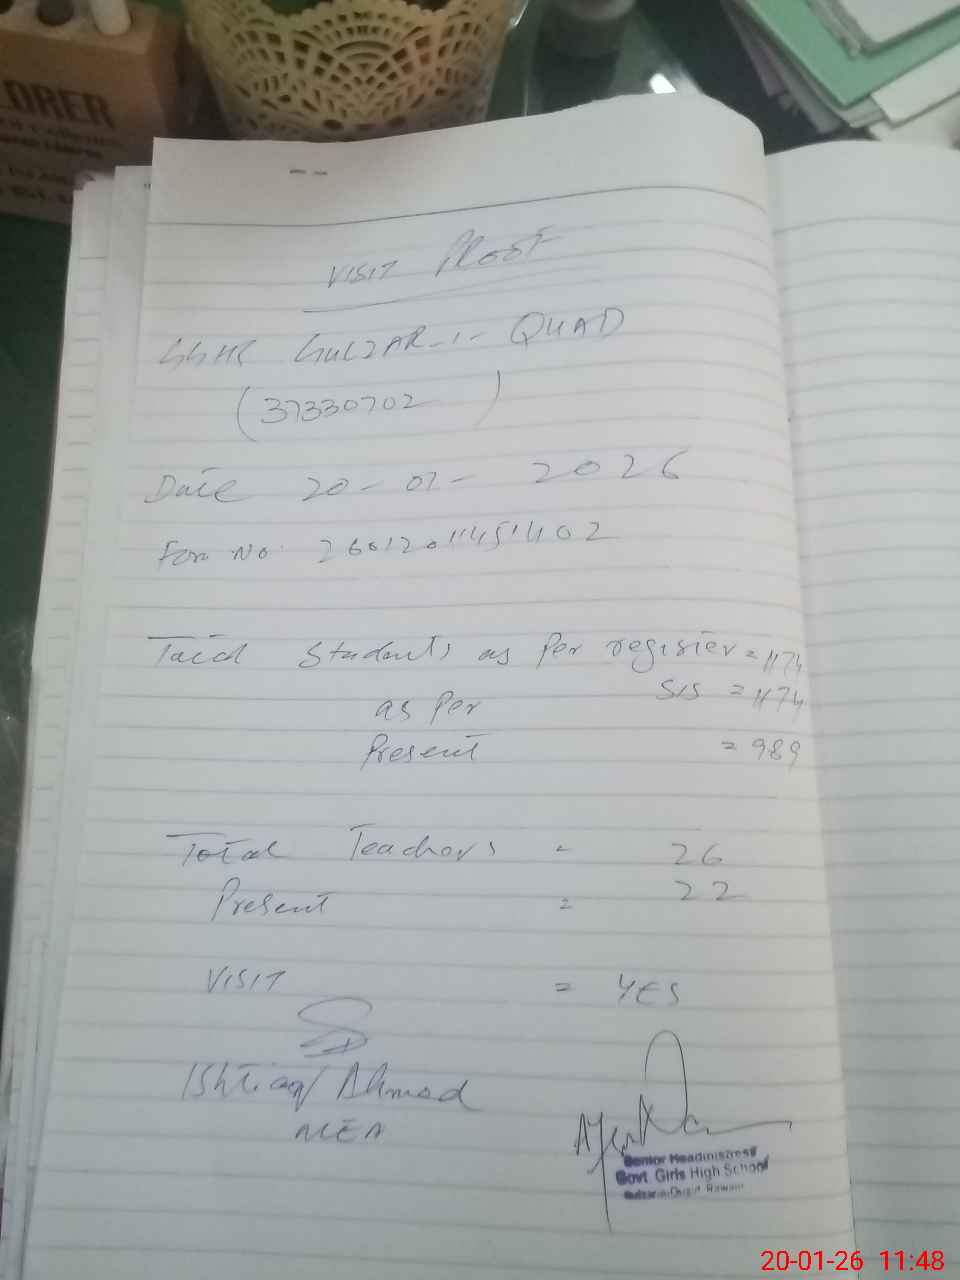 LORER
VISIT PROOF
GGHS GULZAR-I-QUAD
(37330702)
Date 20-01-2026
Form No. 26012011451402
Total Students as Per register = 1174
as Per SIS = 1174
Present = 989
Total Teachers = 26
Present = 22
VISIT = YES
Ishtiaq Ahmad
MEA
Senior Headmistress
Govt Girls High School
20-01-26 11:48